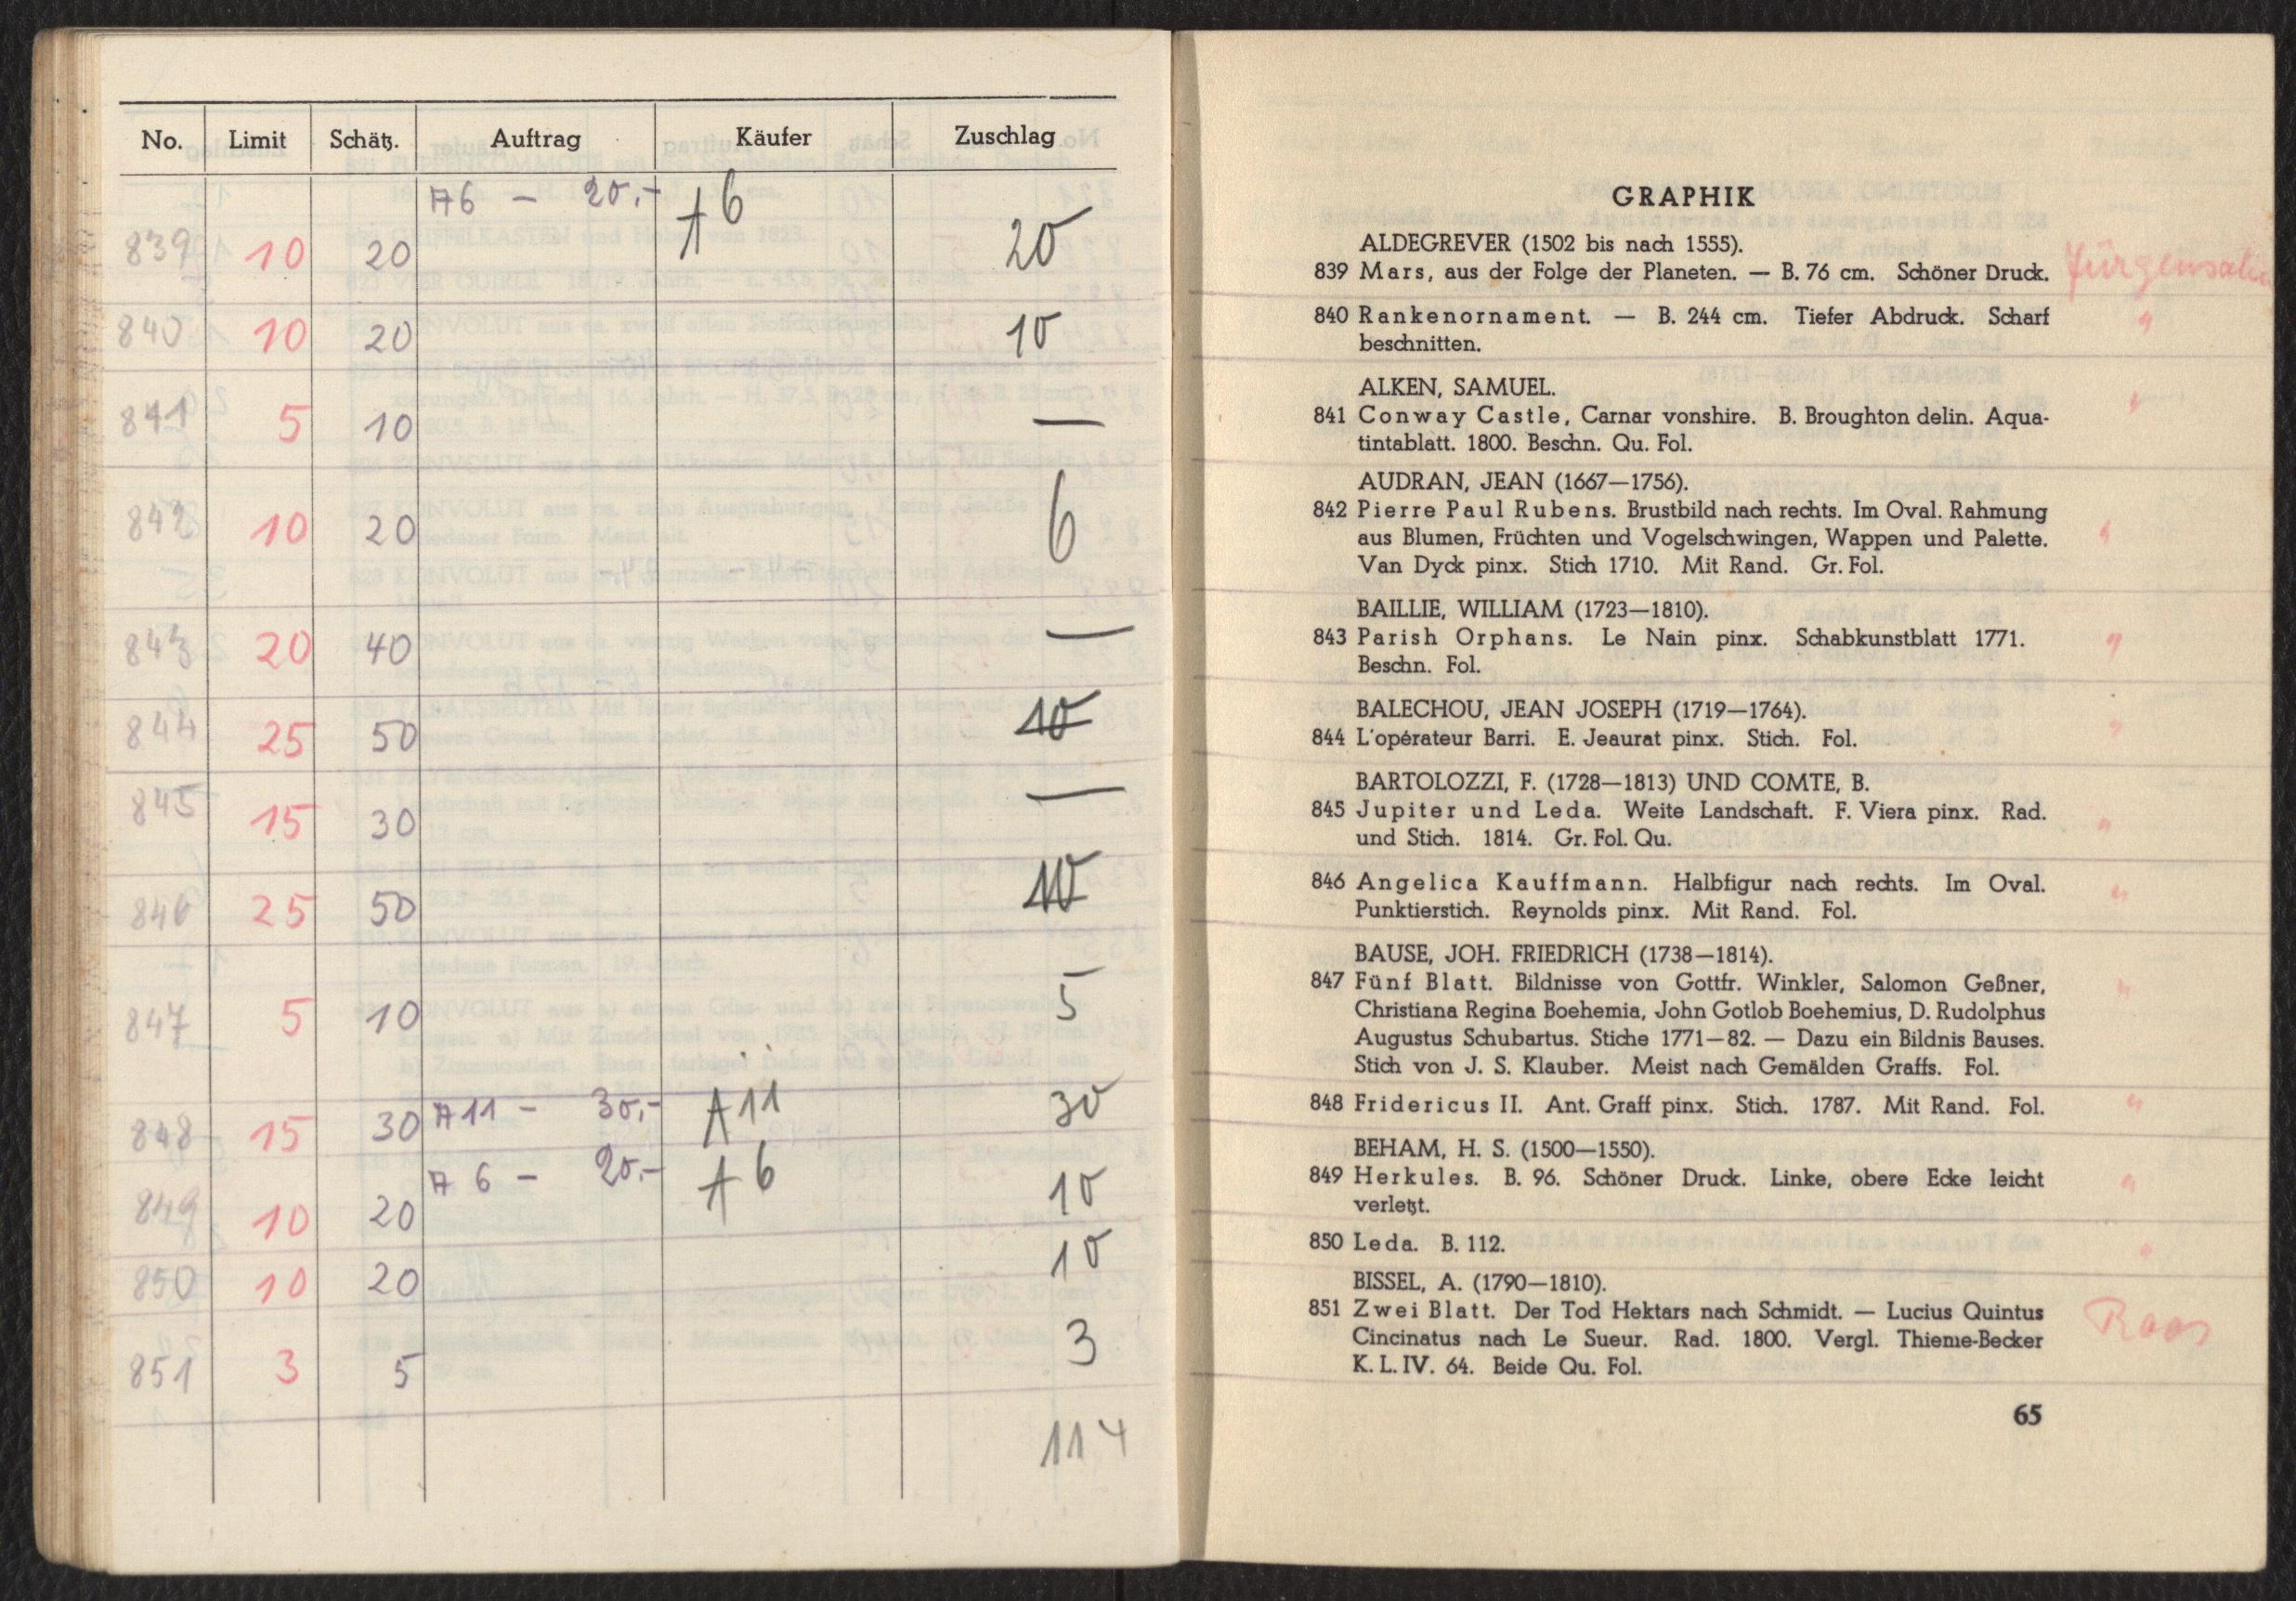 No. Limit Schätz. Auftrag Käufer Zuschlag
A6 – 20,- A6
839 10 20 20
840 10 20 10
841 5 10 —
842 10 20 6
843 20 40 —
844 25 50 10
845 15 30 —
846 25 50 10
847 5 10 5
848 15 30 A11 – 30,- A11 30
A6 – 20,- A6
849 10 20 10
850 10 20 10
851 3 5 3
114
GRAPHIK
ALDEGREVER (1502 bis nach 1555).
839 Mars, aus der Folge der Planeten. — B. 76 cm. Schöner Druck.
840 Rankenornament. — B. 244 cm. Tiefer Abdruck. Scharf "
beschnitten.
ALKEN, SAMUEL. "
841 Conway Castle, Carnar vonshire. B. Broughton delin. Aqua-
tintablatt. 1800. Beschn. Qu. Fol.
AUDRAN, JEAN (1667—1756).
842 Pierre Paul Rubens. Brustbild nach rechts. Im Oval. Rahmung
aus Blumen, Früchten und Vogelschwingen, Wappen und Palette. "
Van Dyck pinx. Stich 1710. Mit Rand. Gr. Fol.
BAILLIE, WILLIAM (1723—1810).
843 Parish Orphans. Le Nain pinx. Schabkunstblatt 1771. "
Beschn. Fol.
BALECHOU, JEAN JOSEPH (1719—1764).
844 L'opérateur Barri. E. Jeaurat pinx. Stich. Fol. "
BARTOLOZZI, F. (1728—1813) UND COMTE, B.
845 Jupiter und Leda. Weite Landschaft. F. Viera pinx. Rad. "
und Stich. 1814. Gr. Fol. Qu.
846 Angelica Kauffmann. Halbfigur nach rechts. Im Oval. "
Punktierstich. Reynolds pinx. Mit Rand. Fol.
BAUSE, JOH. FRIEDRICH (1738—1814).
847 Fünf Blatt. Bildnisse von Gottfr. Winkler, Salomon Geßner, "
Christiana Regina Boehemia, John Gotlob Boehemius, D. Rudolphus
Augustus Schubartus. Stiche 1771—82. — Dazu ein Bildnis Bauses.
Stich von J. S. Klauber. Meist nach Gemälden Graffs. Fol.
848 Fridericus II. Ant. Graff pinx. Stich. 1787. Mit Rand. Fol. "
BEHAM, H. S. (1500—1550).
849 Herkules. B. 96. Schöner Druck. Linke, obere Ecke leicht "
verletzt.
850 Leda. B. 112. "
BISSEL, A. (1790—1810).
851 Zwei Blatt. Der Tod Hektars nach Schmidt. — Lucius Quintus Roos
Cincinatus nach Le Sueur. Rad. 1800. Vergl. Thieme-Becker
K. L. IV. 64. Beide Qu. Fol.
65